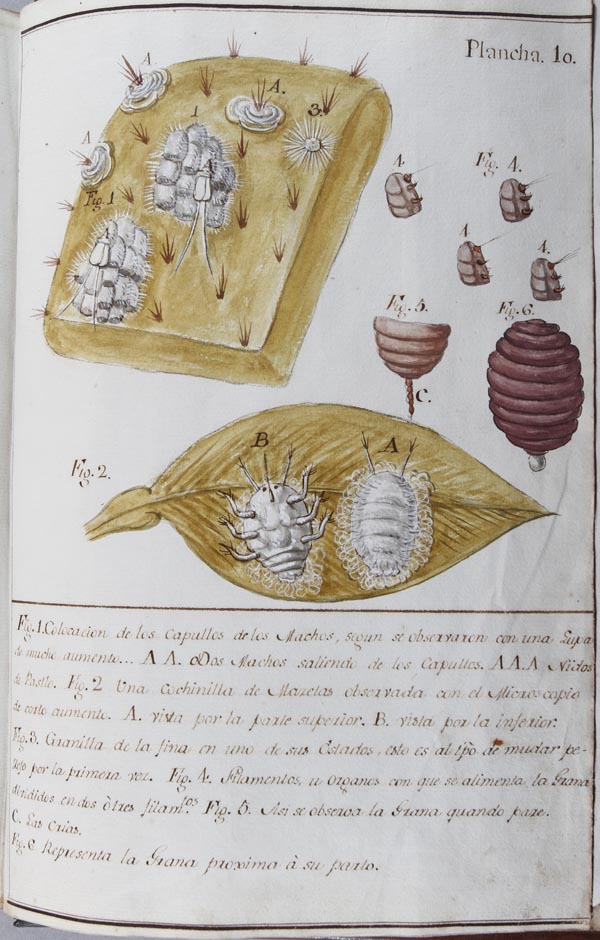 Plancha. 10.
A.
A.
A
1
3.
Fig. 1
4.
Fig. 4.
4.
4.
Fig. 5.
Fig. 6.
C.
Fig. 2.
B
A
Fig. 1. Colocacion de los Capullos de los Machos, segun se observaron con una Lupa
de mucho aumento... A A. Dos Machos saliendo de los Capullos. A A A Nidos
de Pastle. Fig. 2 Una Cochinilla de Mazetas observada con el Microscopio
de corto aumento. A. vista por la parte superior. B. vista por la inferior.
Fig. 3. Granilla de la fina en uno de sus Estados, esto es al tpo de mudar pe-
por la primera vez. Fig. 4. Filamentos, u organos con que se alimenta la Grana
divididos en dos ò tres filam.tos Fig. 5. Asi se observa la Grana quando pare.
C. Las Crias.
Fig. 6 Representa la Grana proxima à su parto.